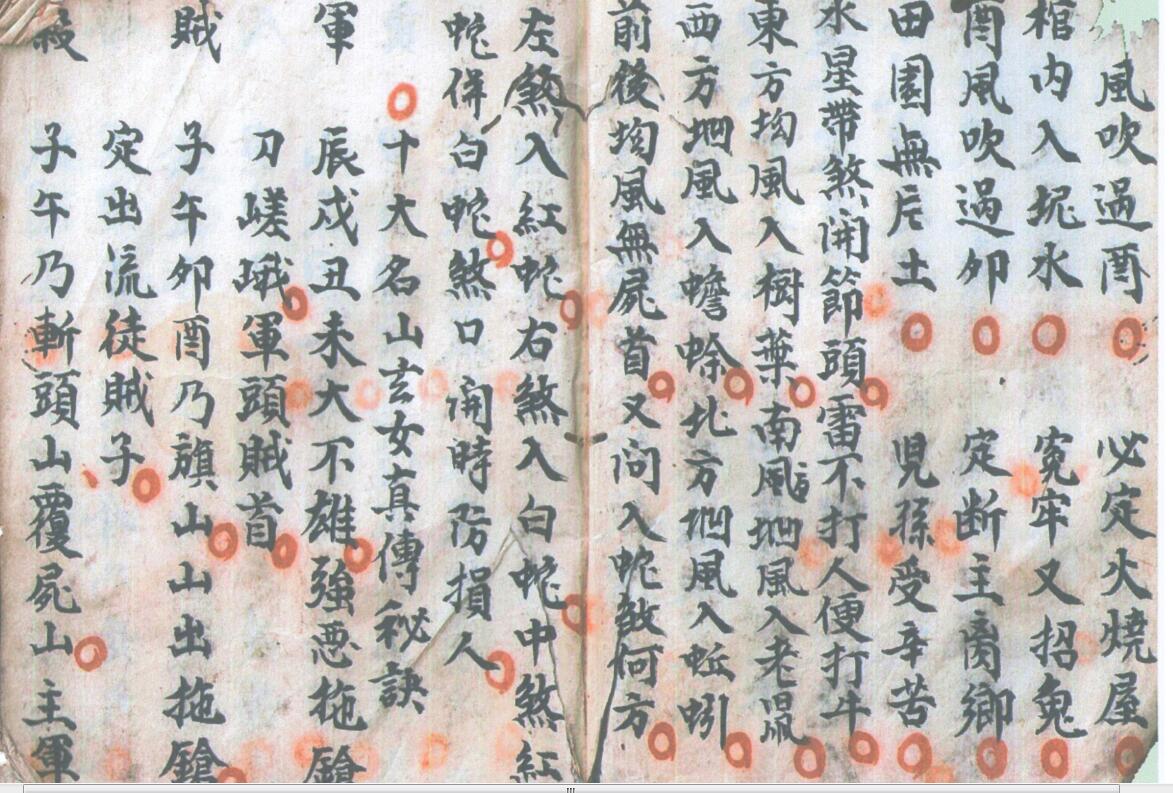 風吹過酉 必定火燒屋
棺内入坭水 寃牢又招
酉風吹過卯 定断主离鄉
田園無片土 児孫受辛苦
水星帶煞開節頭雷不打人便打牛
東方坳風入樹葉南風坳風入老鼠
西方坳風入蟾蜍北方坳風入蚯蚓
前後坳風無屍首又问入蛇煞何方
左煞入紅蛇右煞入白蛇中煞紅
蛇併白蛇煞口開時防損人
十大名山玄女真傳秘訣
軍 辰戍丑未大不雄強惡拖鎗
刀嵯峨軍頭賊首
賊 子午卯酉乃旗山山出拖鎗
定出流徒賊子
殺 子午乃斬頭山覆屍山主軍